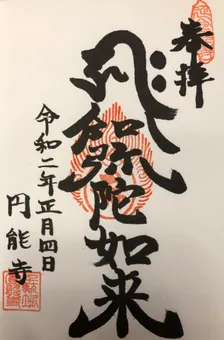 奉拝
弥陀如来
令和二年正月四日
円能寺